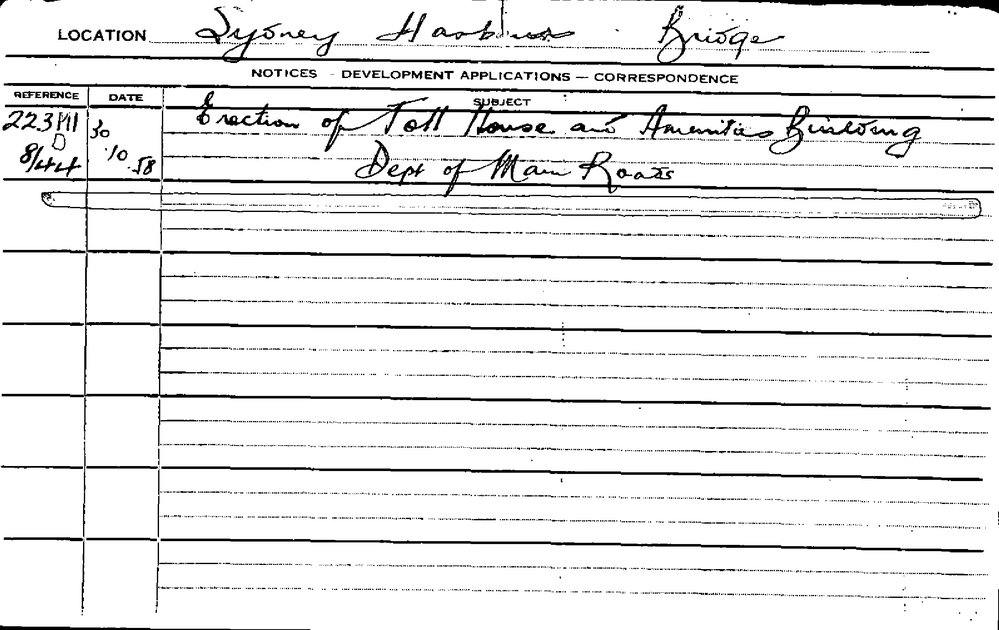 LOCATION Sydney Harbour Bridge
NOTICES - DEVELOPMENT APPLICATIONS — CORRESPONDENCE
REFERENCE DATE SUBJECT
30 Erection of Toll House and Amenities Building
8/44 10 58 Dept of Main Roads